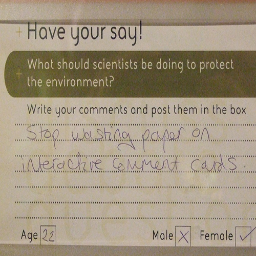 Have your say!
What should scientists be doing to protect
the environment?
Write your comments and post them in the box
Stop wasting paper on
interactive comment cards.
Age 22 Male X Female ✓